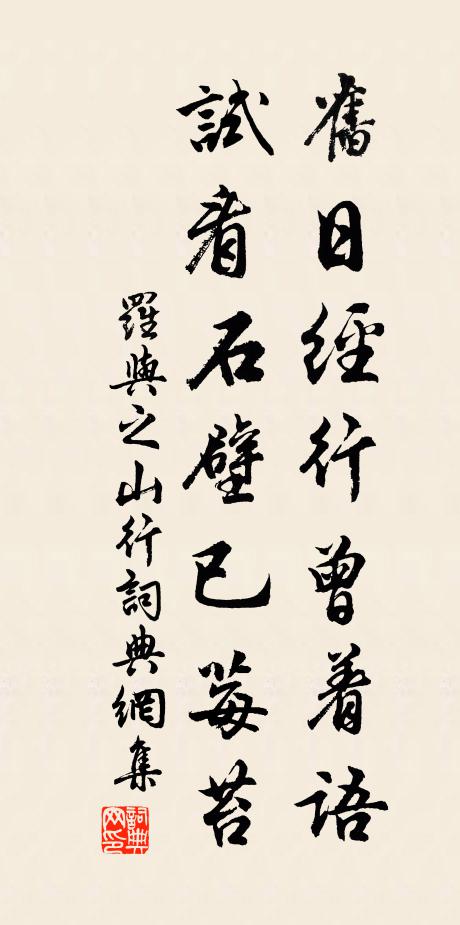 舊日經行曾着語
試看石壁已莓苔
羅與之山行詞典網集
詞典網印